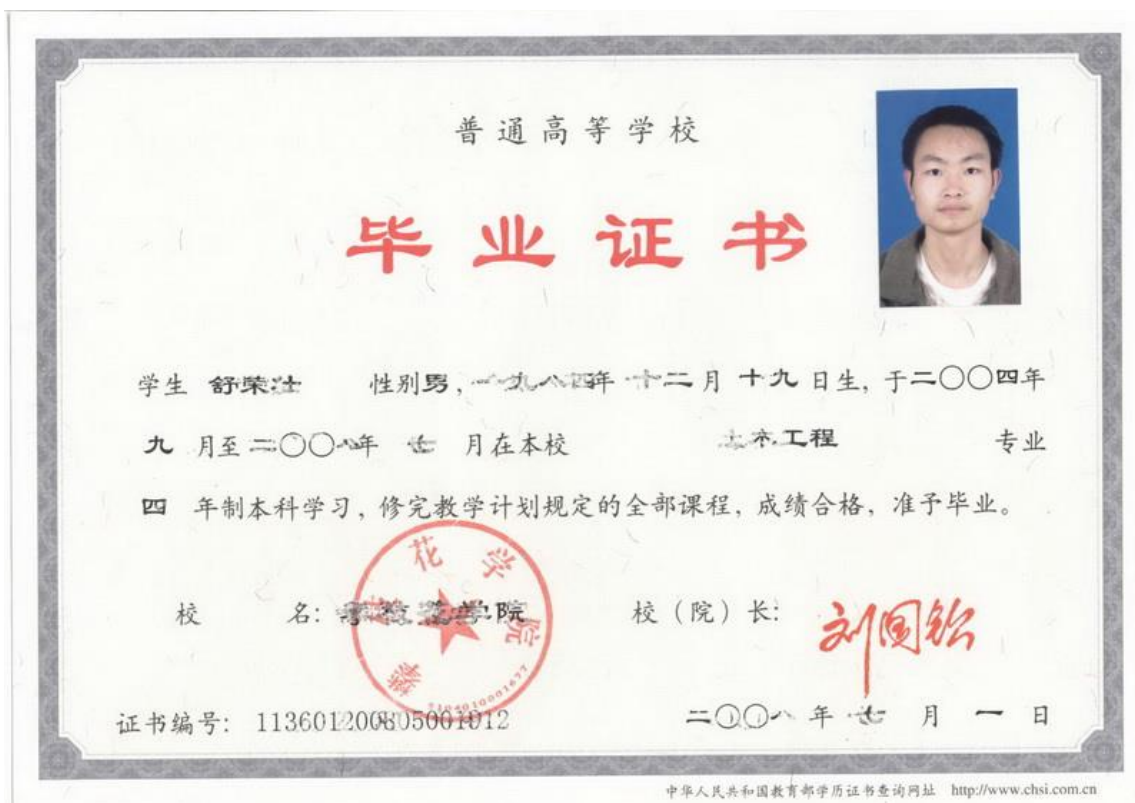 普通高等学校
毕业证书
学生 舒荣仕 性别男，一九八四年 十二月 十九日生，于二〇〇四年
九 月至二〇〇八年 七 月在本校 土木工程 专业
四 年制本科学习，修完教学计划规定的全部课程，成绩合格，准予毕业。
校 名：攀枝花学院 校（院）长：刘国钦
攀枝花学院
证书编号：113601200805001912 二〇〇八年 七 月 一 日
中华人民共和国教育部学历证书查询网址 http://www.chsi.com.cn